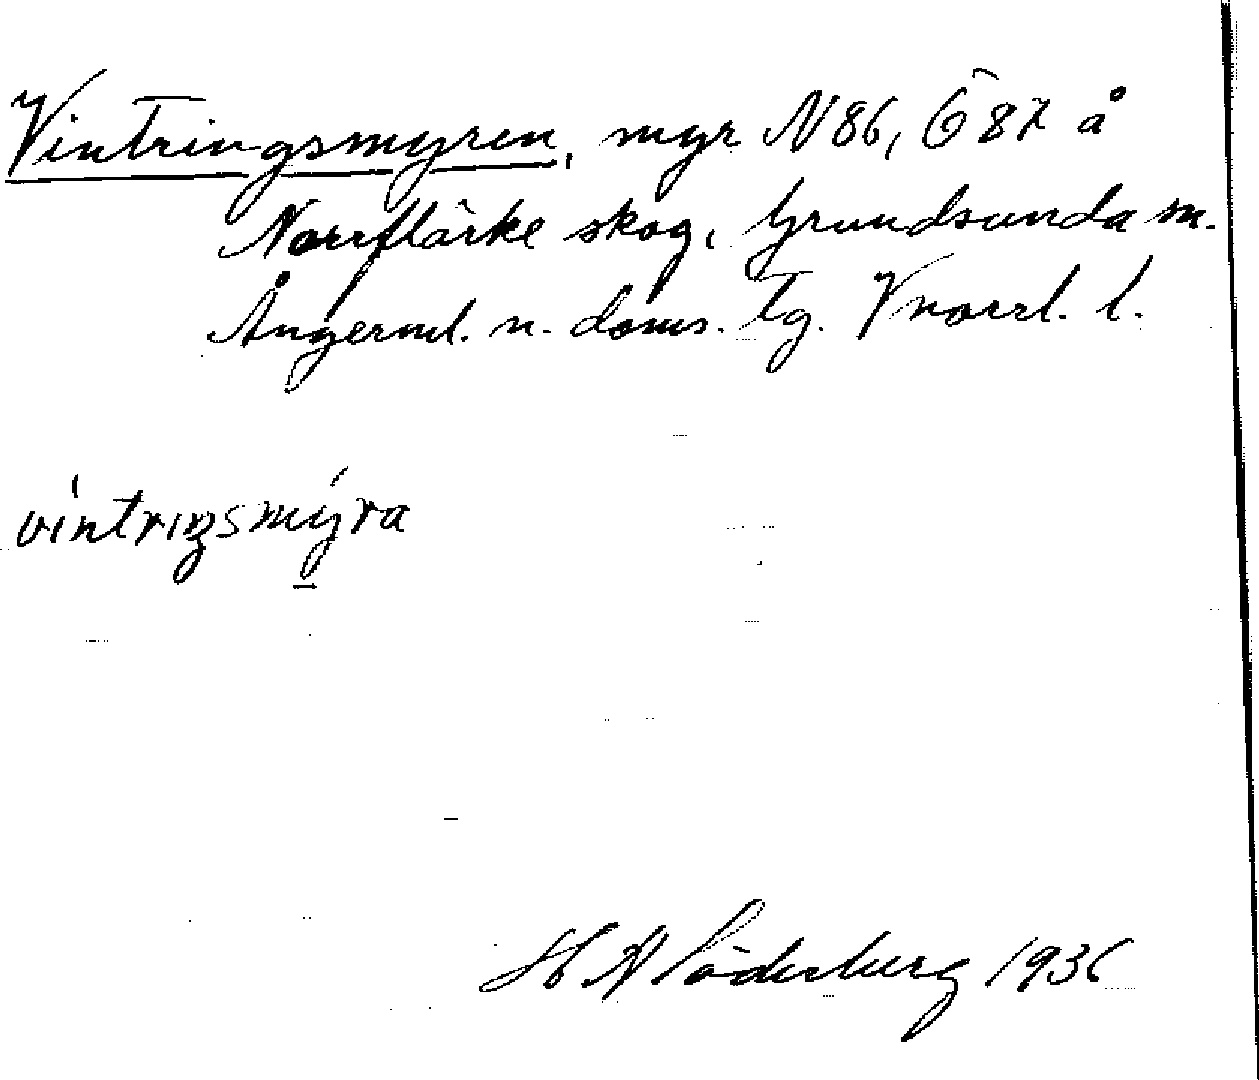 Vintringsmyren, myr N86, Ö87 å
Norrflärke skog, Grundsunda sn.
Ångerml. n. doms. tg. Vnorrl. l.
vintriŋsmýra
H A Söderberg 1936